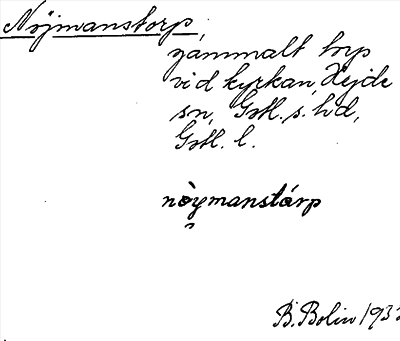 Nöjmanstorp,
gammalt torp
vid kyrkan, Hejde
sn, Gotl. s. hd,
Gotl. l.
nòymanstárp
B. Bolin 193